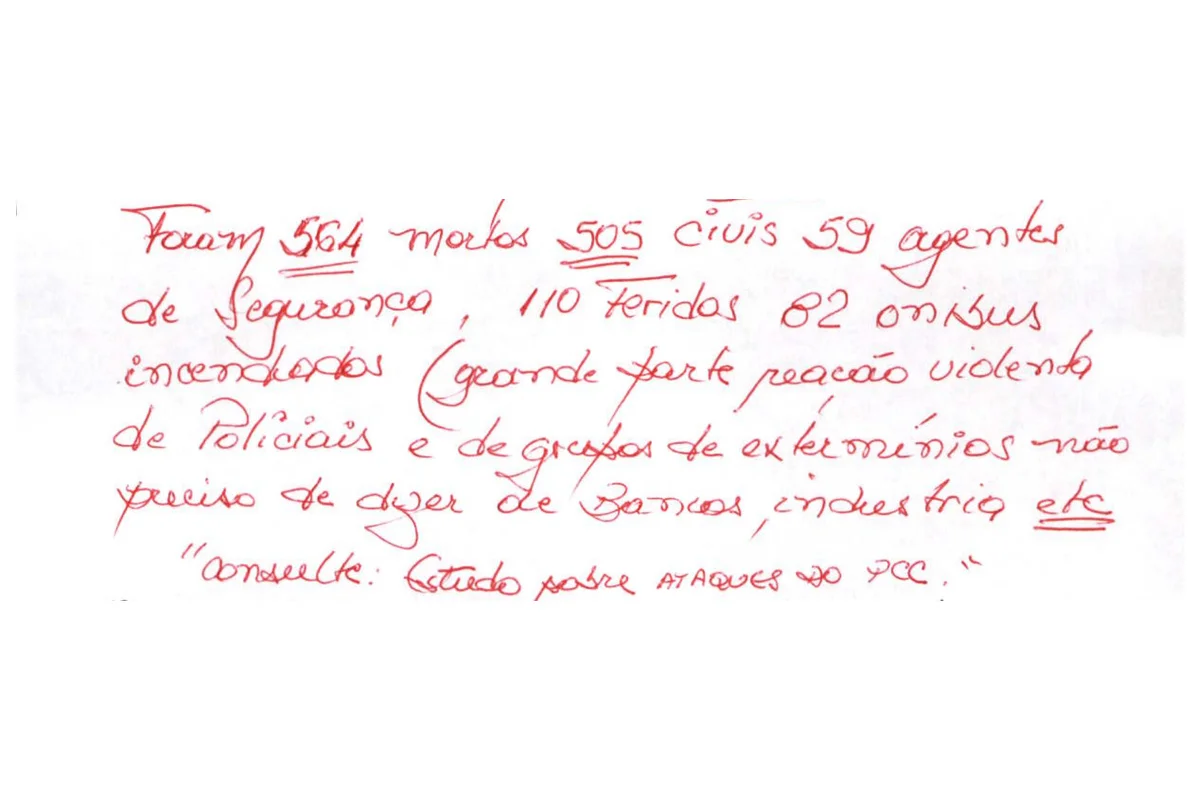 Foram 564 mortos 505 civis 59 agentes
de Segurança, 110 Feridos 82 onibus
incendiados (grande parte reação violenta
de Policiais e de grupos de extermínios não
preciso de dizer de Bancos, industria etc
"consulte: Estudo sobre ATAQUES DO PCC."